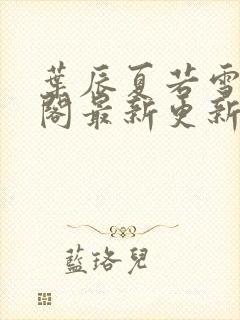 葉辰夏若雪
閣最新更新
藍珞兒